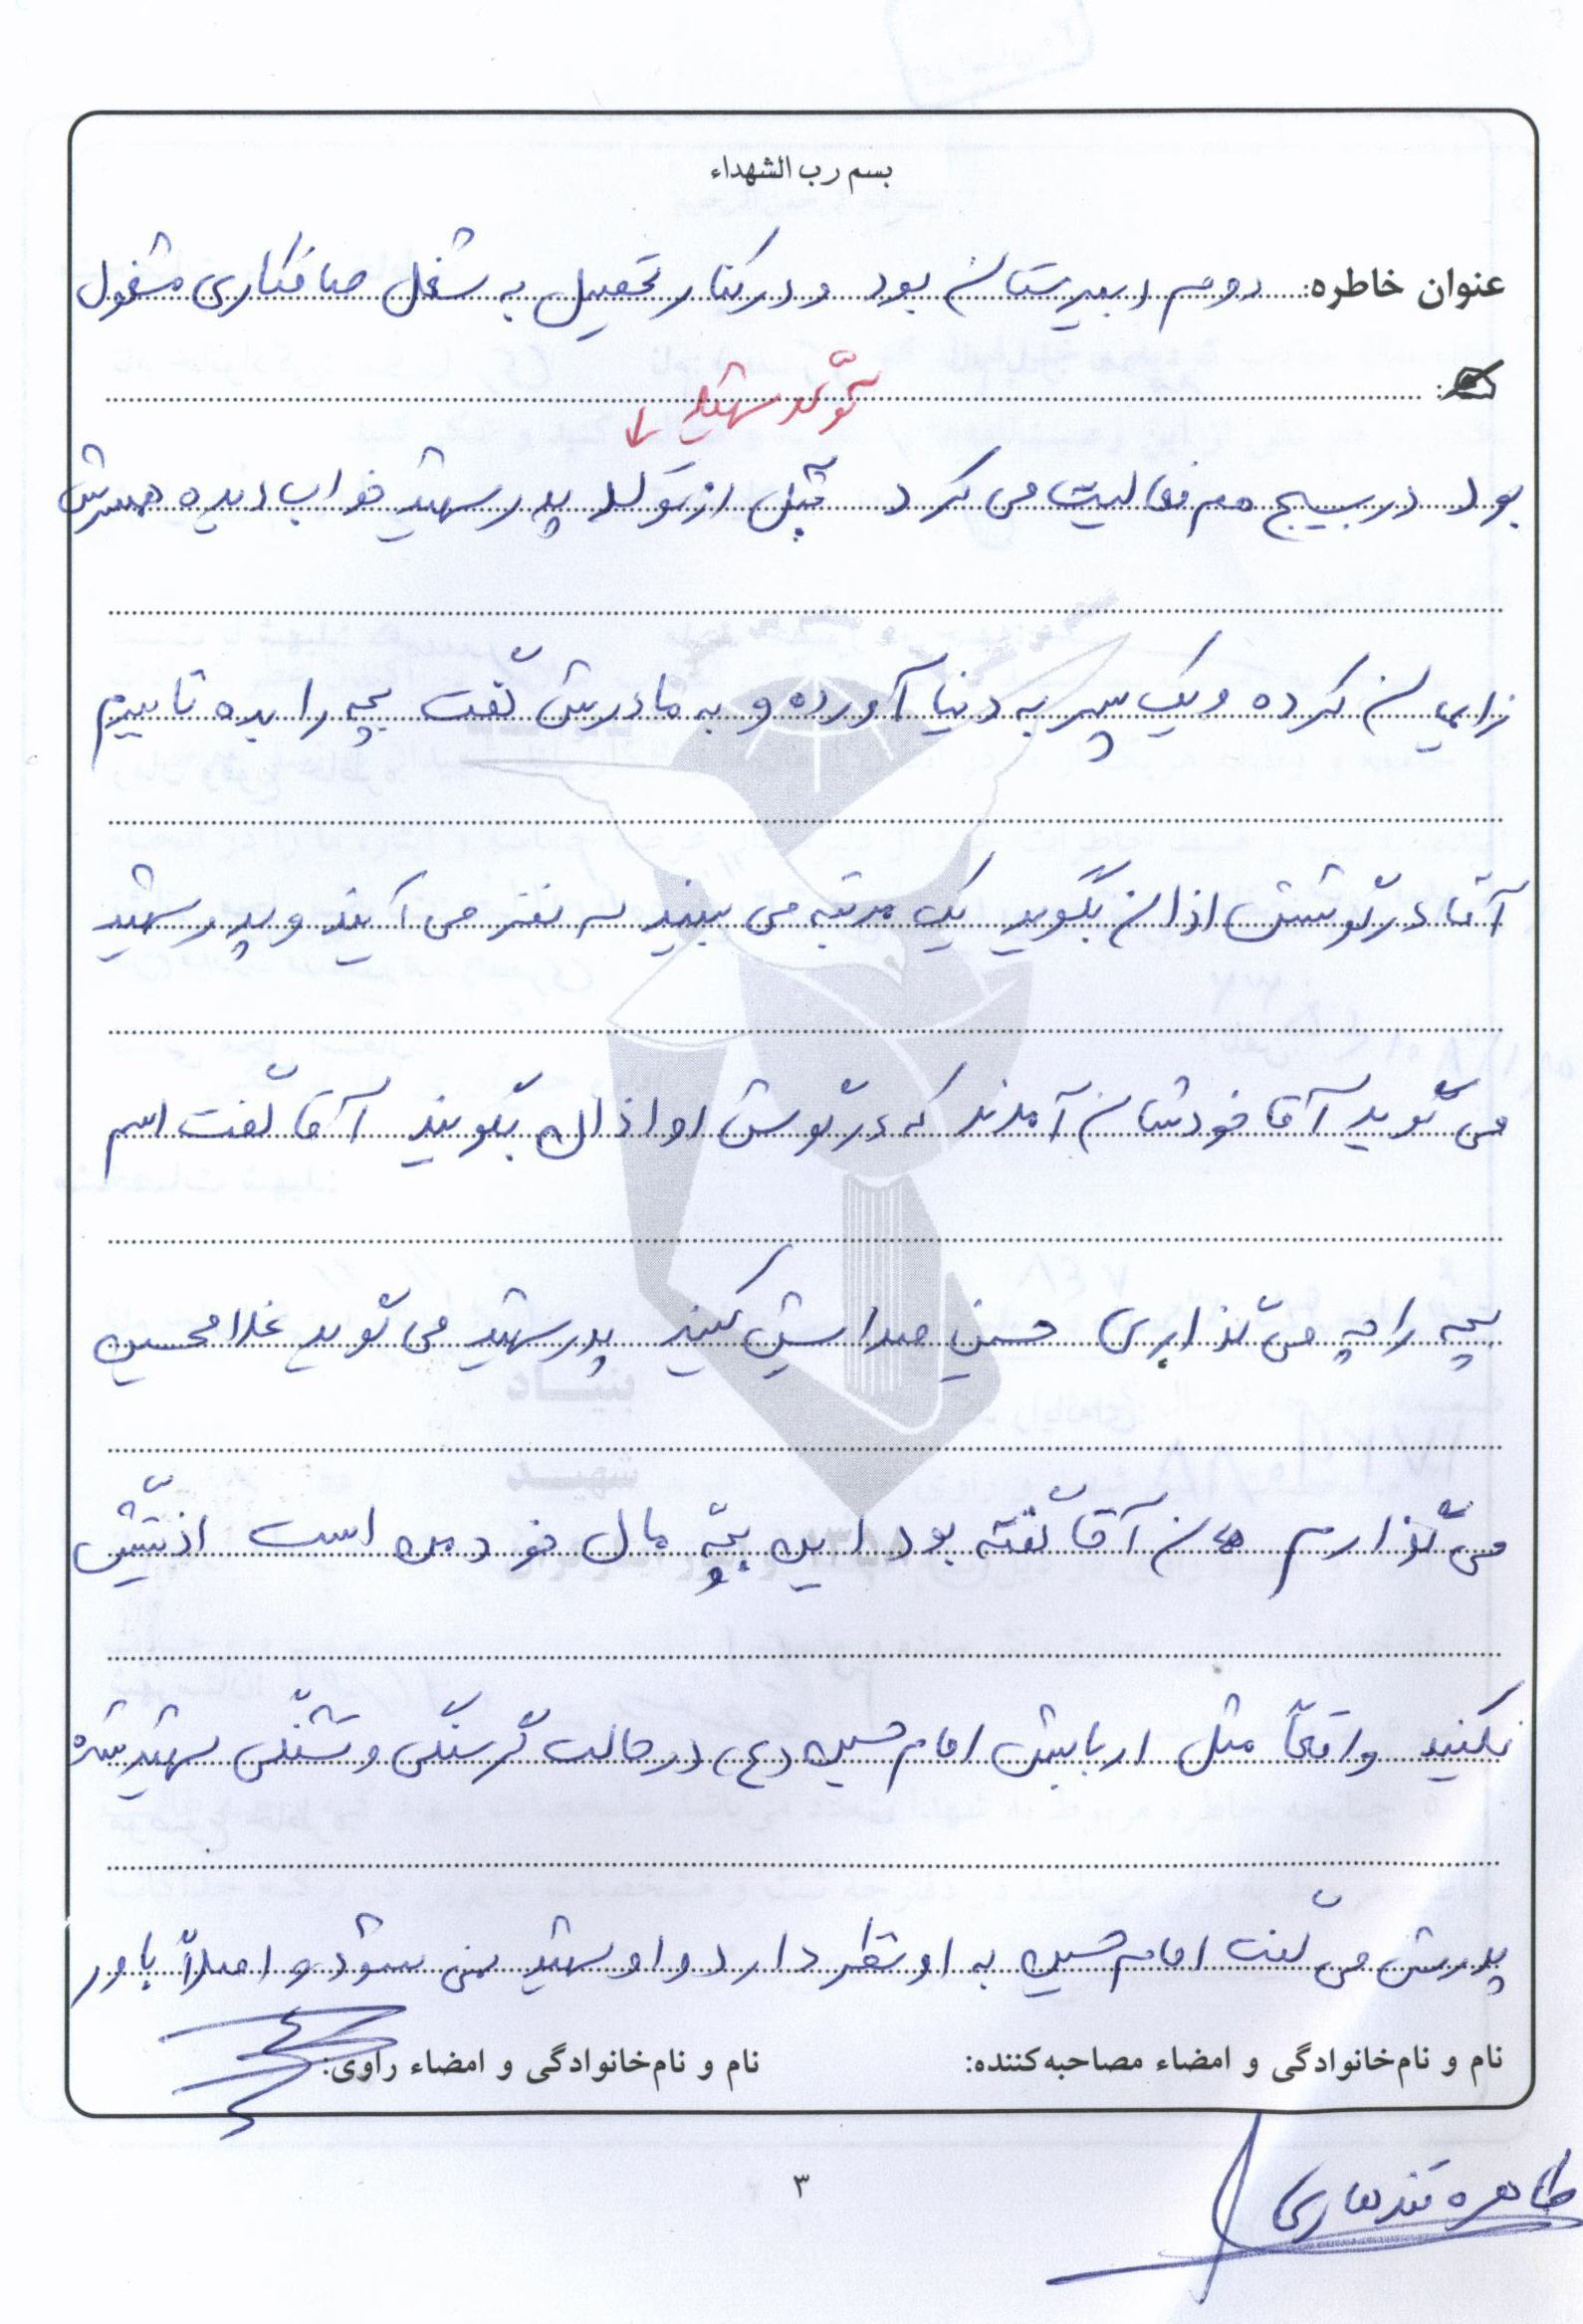 بسم رب الشهداء
عنوان خاطره: دوم دبیرستان بود و در کنار تحصیل به شغل صافکاری مشغول
تولد شهید ↓
بود در بسیج هم فعالیت می کرد قبل از تولد پدر شهید خواب دیده همسرش
زایمان کرده و یک پسر به دنیا آورده و به مادرش گفت بچه را بده تا ببرم
آقا در گوشش اذان بگوید یک مرتبه می بیند سه نفر می آیند و پدر شهید
می گوید آقا خودشان آمدند که در گوش او اذان بگویند آقا گفت اسم
بچه را چه می گذاری حسین صدایش کنید پدر شهید می گوید غلامحسین
می گذارم همان آقا گفته بود این بچّه مال خود من است اذیتش
نکنید واقعاً مثل اربابش امام حسین (ع) در حالت گرسنگی و تشنگی شهید شده
پدرش می گفت امام حسین به او نظر دارد و او شهید نمی شود و اصلاً باور
نام و نام‌خانوادگی و امضاء مصاحبه‌کننده: نام و نام‌خانوادگی و امضاء راوی:
طاهره قندهاری
۳
بنیاد
شهید